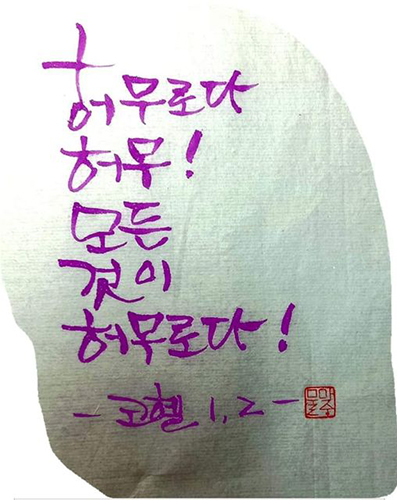 허무로다
허무!
모든
것이
허무로다!
- 코헬 1,2 -